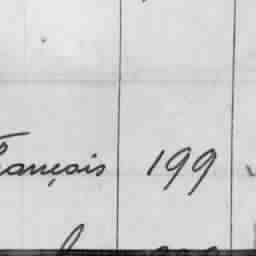 François 199